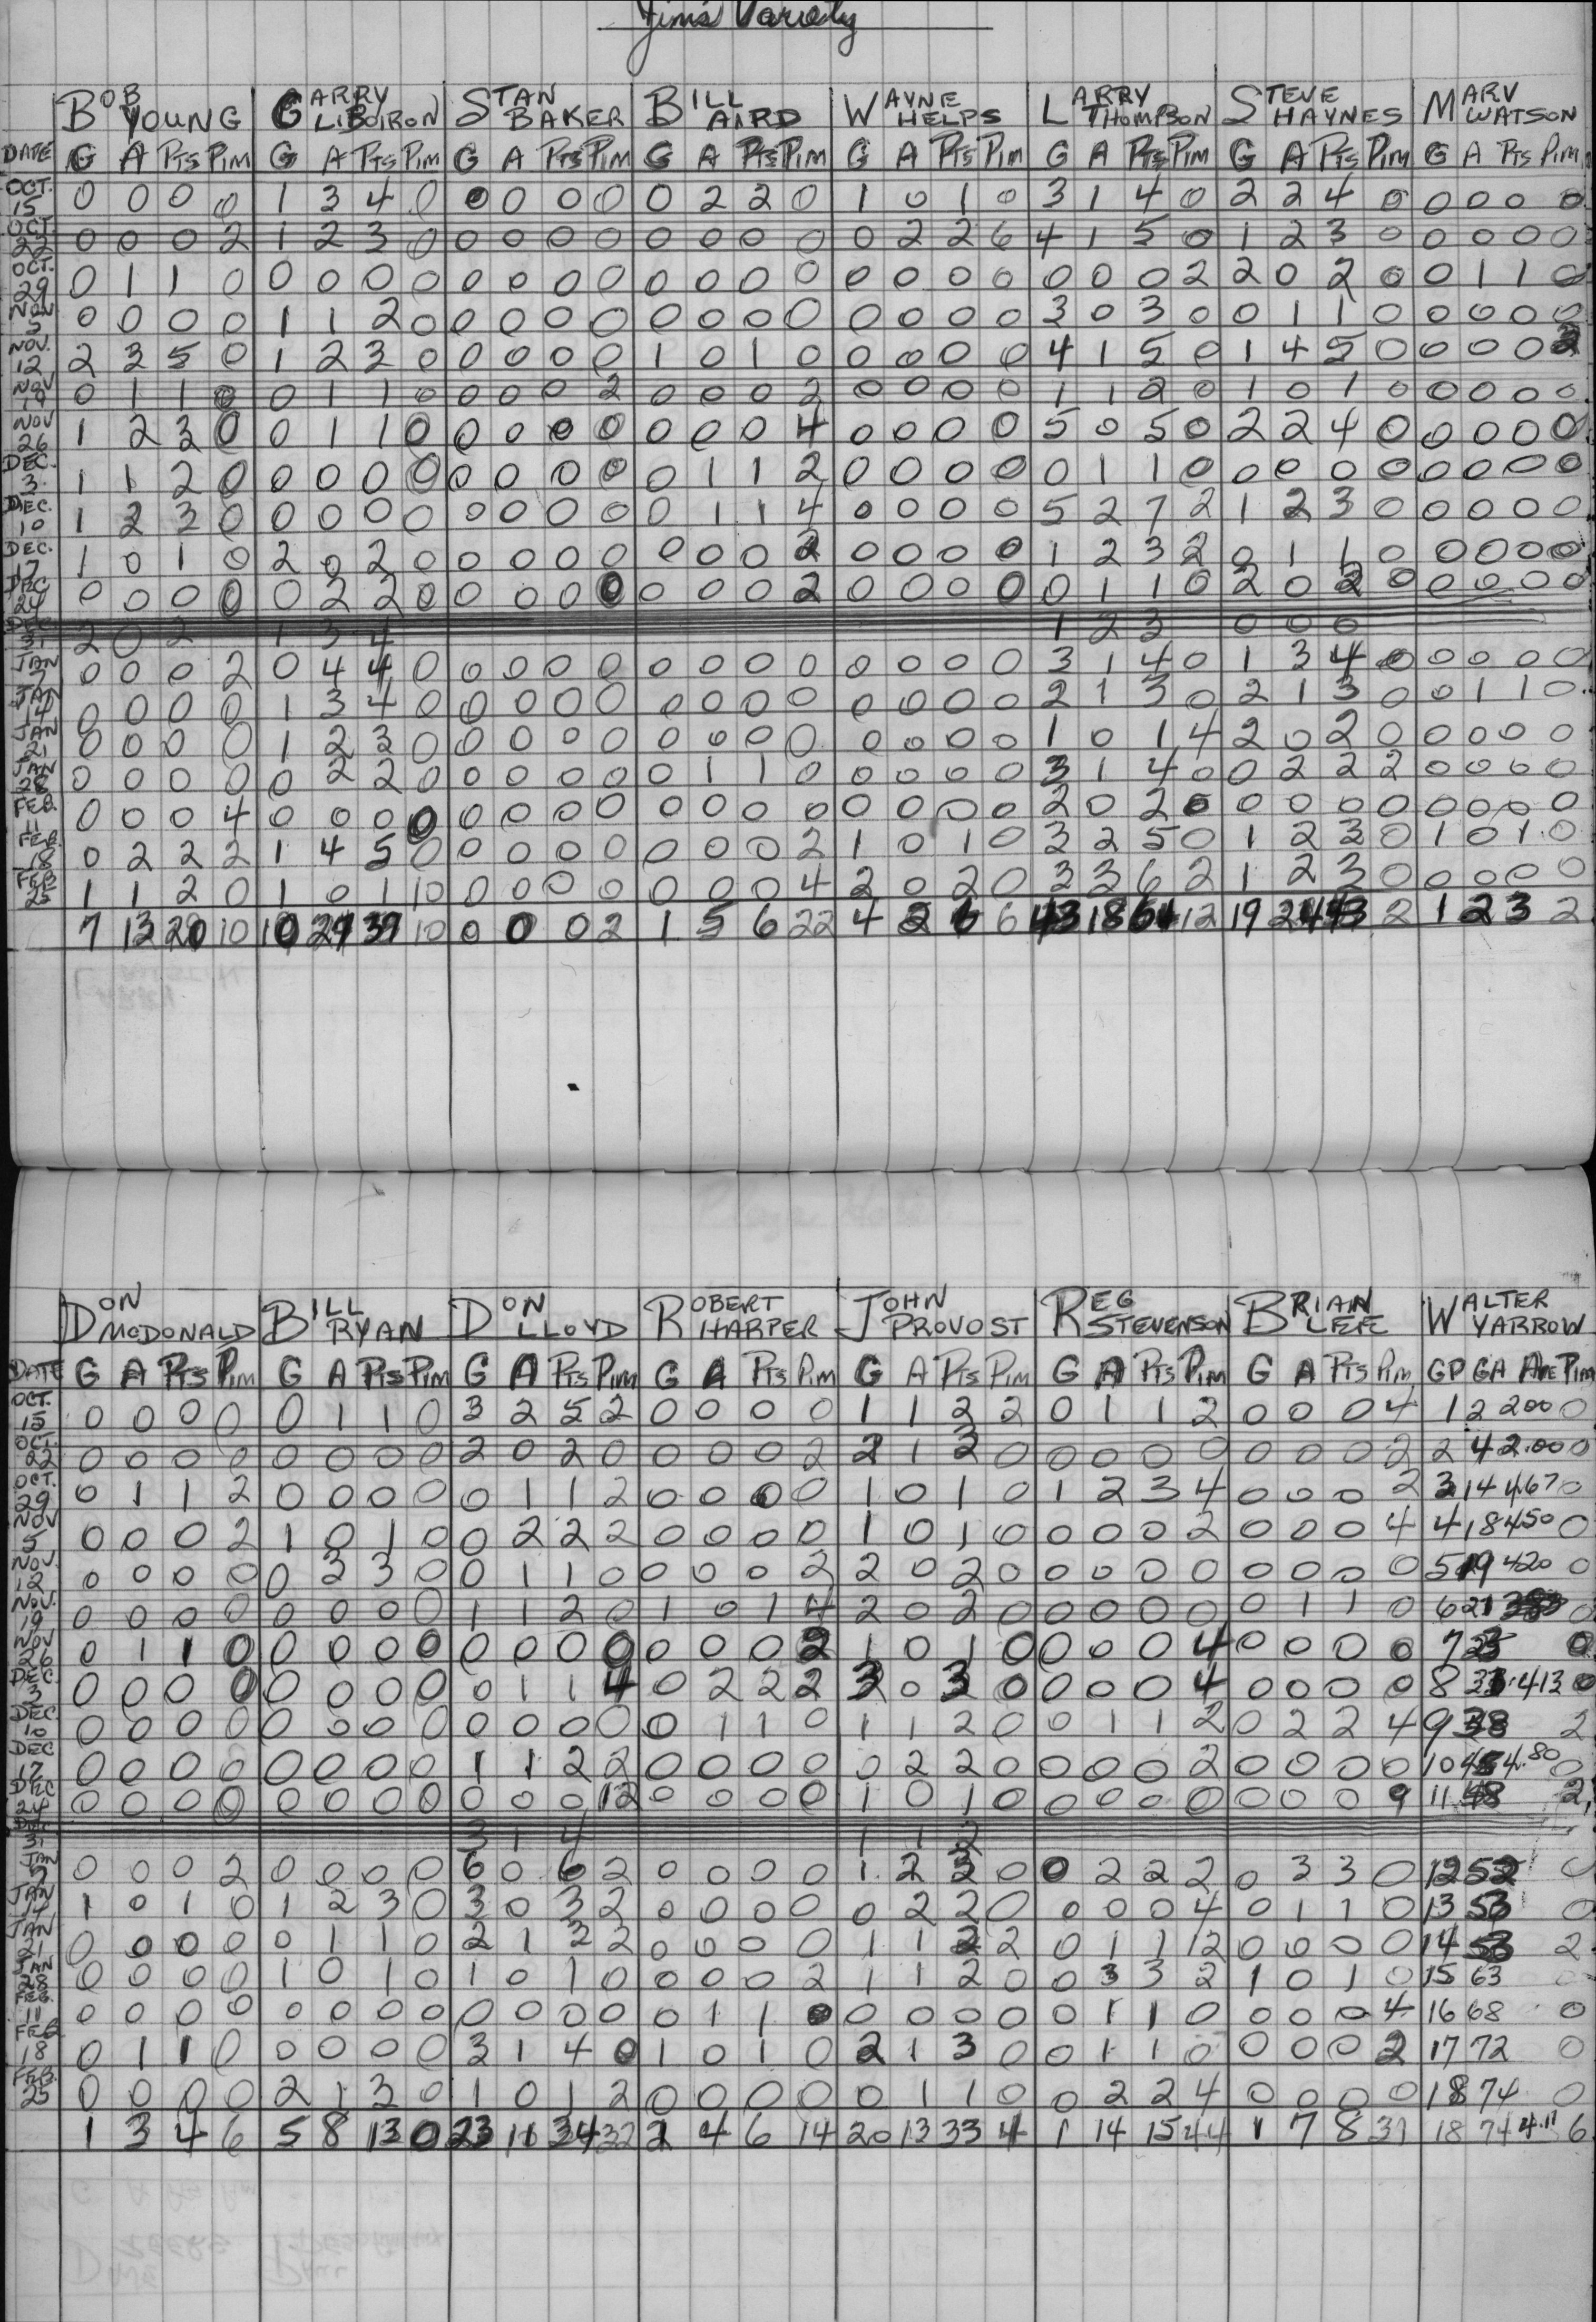 Jim's Variety
BOB YOUNG GARRY LIBOIRON STAN BAKER BILL AIRD WAYNE HELPS LARRY THOMPSON STEVE HAYNES MARV WATSON
DATE G A PTS PIM G A PTS PIM G A PTS PIM G A PTS PIM G A PTS PIM G A PTS PIM G A PTS PIM G A PTS PIM
OCT. 15 0 0 0 0 1 3 4 0 0 0 0 0 0 2 2 0 1 0 1 0 3 1 4 0 2 2 4 0 0 0 0 0
OCT. 22 0 0 0 2 1 2 3 0 0 0 0 0 0 0 0 0 0 2 2 6 4 1 5 0 1 2 3 0 0 0 0 0
OCT. 29 0 1 1 0 0 0 0 0 0 0 0 0 0 0 0 0 0 0 0 0 0 0 0 2 2 0 2 0 0 1 1 0
NOV 5 0 0 0 0 1 1 2 0 0 0 0 0 0 0 0 0 0 0 0 0 3 0 3 0 0 1 1 0 0 0 0 0
NOV. 12 2 3 5 0 1 2 3 0 0 0 0 0 1 0 1 0 0 0 0 0 4 1 5 0 1 4 5 0 0 0 0 2
NOV 19 0 1 1 0 0 1 1 0 0 0 0 2 0 0 0 2 0 0 0 0 1 1 2 0 1 0 1 0 0 0 0 0
NOV 26 1 2 3 0 0 1 1 0 0 0 0 0 0 0 0 4 0 0 0 0 5 0 5 0 2 2 4 0 0 0 0 0
DEC. 3 1 1 2 0 0 0 0 0 0 0 0 0 0 1 1 2 0 0 0 0 0 1 1 0 0 0 0 0 0 0 0 0
DEC. 10 1 2 3 0 0 0 0 0 0 0 0 0 0 1 1 4 0 0 0 0 5 2 7 2 1 2 3 0 0 0 0 0
DEC. 17 1 0 1 0 2 0 2 0 0 0 0 0 0 0 0 2 0 0 0 0 1 2 3 2 0 1 1 0 0 0 0 0
DEC 24 0 0 0 0 0 2 2 0 0 0 0 0 0 0 0 2 0 0 0 0 0 1 1 0 2 0 2 0 0 0 0 0
DEC 31 2 0 2 1 3 4 1 2 3 0 0 0
JAN 7 0 0 0 2 0 4 4 0 0 0 0 0 0 0 0 0 0 0 0 0 3 1 4 0 1 3 4 0 0 0 0 0
JAN 14 0 0 0 0 1 3 4 0 0 0 0 0 0 0 0 0 0 0 0 0 2 1 3 0 2 1 3 0 0 1 1 0
JAN 21 0 0 0 0 1 2 3 0 0 0 0 0 0 0 0 0 0 0 0 0 1 0 1 4 2 0 2 0 0 0 0 0
JAN 28 0 0 0 0 0 2 2 0 0 0 0 0 0 1 1 0 0 0 0 0 3 1 4 0 0 2 2 2 0 0 0 0
FEB. 11 0 0 0 4 0 0 0 0 0 0 0 0 0 0 0 0 0 0 0 0 2 0 2 0 0 0 0 0 0 0 0 0
FEB. 18 0 2 2 2 1 4 5 0 0 0 0 0 0 0 0 2 1 0 1 0 3 2 5 0 1 2 3 0 1 0 1 0
FEB 25 1 1 2 0 1 0 1 10 0 0 0 0 0 0 0 4 2 0 2 0 3 3 6 2 1 2 3 0 0 0 0 0
7 13 20 10 10 29 39 10 0 0 0 2 1 5 6 22 4 2 6 6 43 18 61 12 19 24 43 2 1 2 3 2
DON MCDONALD BILL RYAN DON LLOYD ROBERT HARPER JOHN PROVOST REG STEVENSON BRIAN WALTER YARROW
DATE G A PTS PIM G A PTS PIM G A PTS PIM G A PTS PIM G A PTS PIM G A PTS PIM G A PTS PIM GP GA AVE PIM
OCT. 15 0 0 0 0 0 1 1 0 3 2 5 2 0 0 0 0 1 1 2 2 0 1 1 2 0 0 0 4 1 2 2.00 0
OCT. 22 0 0 0 0 0 0 0 0 2 0 2 0 0 0 0 2 2 1 3 0 0 0 0 0 0 0 0 2 2 4 2.00 0
OCT. 29 0 1 1 2 0 0 0 0 0 1 1 2 0 0 0 0 1 0 1 0 1 2 3 4 0 0 0 2 3 14 4.67 0
NOV 5 0 0 0 2 1 0 1 0 0 2 2 2 0 0 0 0 1 0 1 0 0 0 0 2 0 0 0 4 4 18 4.50 0
NOV. 12 0 0 0 0 0 3 3 0 0 1 1 0 0 0 0 2 2 0 2 0 0 0 0 0 0 0 0 0 5 19 4.20 0
NOV. 19 0 0 0 0 0 0 0 0 1 1 2 0 1 0 1 4 2 0 2 0 0 0 0 0 0 1 1 0 6 21 0
NOV 26 0 1 1 0 0 0 0 0 0 0 0 0 0 0 0 2 1 0 1 0 0 0 0 4 0 0 0 0 7 25 0
DEC 3 0 0 0 0 0 0 0 0 0 1 1 4 0 2 2 2 3 0 3 0 0 0 0 4 0 0 0 0 8 33 4.13 0
DEC. 10 0 0 0 0 0 0 0 0 0 0 0 0 0 1 1 0 1 1 2 0 0 1 1 2 0 2 2 4 9 38 2
DEC 17 0 0 0 0 0 0 0 0 1 1 2 2 0 0 0 0 0 2 2 0 0 0 0 2 0 0 0 0 10 4.80 0
DEC 24 0 0 0 0 0 0 0 0 0 0 0 12 0 0 0 0 1 0 1 0 0 0 0 0 0 0 0 9 11 48 2
DEC 31 3 1 4 1 1 2
JAN 7 0 0 0 2 0 0 0 0 6 0 6 2 0 0 0 0 1 2 3 0 0 2 2 2 0 3 3 0 12 52 0
JAN 14 1 0 1 0 1 2 3 0 3 0 3 2 0 0 0 0 0 2 2 0 0 0 0 4 0 1 1 0 13 53 0
JAN 21 0 0 0 0 0 1 1 0 2 1 3 2 0 0 0 0 1 1 2 2 0 1 1 12 0 0 0 0 14 58 2
JAN 28 0 0 0 0 1 0 1 0 1 0 1 0 0 0 0 2 1 1 2 0 0 3 3 2 1 0 1 0 15 63 0
FEB. 11 0 0 0 0 0 0 0 0 0 0 0 0 0 1 1 0 0 0 0 0 0 1 1 0 0 0 0 4 16 68 0
FEB 18 0 1 1 0 0 0 0 0 3 1 4 0 1 0 1 0 2 1 3 0 0 1 1 0 0 0 0 2 17 72 0
FEB. 25 0 0 0 0 2 1 3 0 1 0 1 2 0 0 0 0 0 1 1 0 0 2 2 4 0 0 0 0 18 74 0
1 3 4 6 5 8 13 0 23 11 34 32 2 4 6 14 20 13 33 4 1 14 15 44 1 7 8 31 18 74 4.11 6